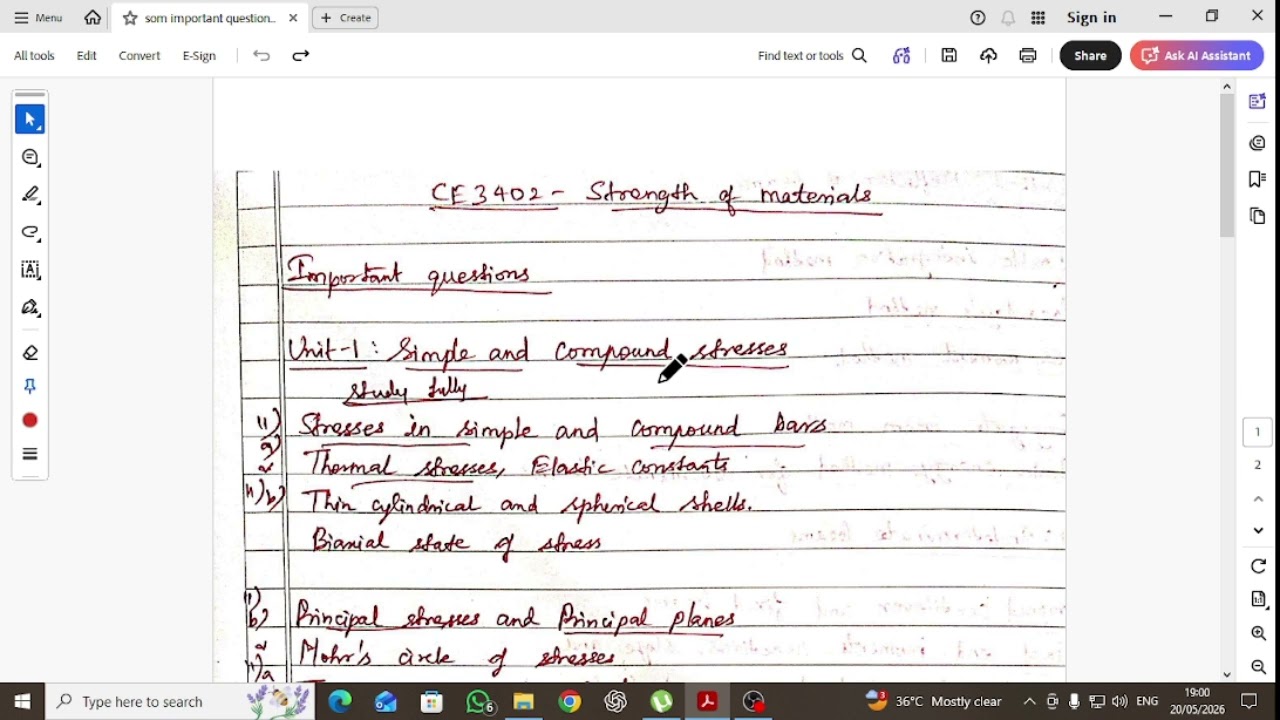 Menu
som important question...
Create
Sign in
All tools
Edit
Convert
E-Sign
Find text or tools
Share
Ask AI Assistant
CE3402 - Strength of materials
Important questions
Unit-1 : Simple and compound stresses
study fully
11) a) Stresses in simple and compound bars
Thermal stresses, Elastic constants
11) b) Thin cylindrical and spherical shells.
Biaxial state of stress
11) b) Principal stresses and Principal planes
11) a Mohr's circle of stresses
1
2
Type here to search
6
3
36°C Mostly clear
ENG
19:00
20/05/2026